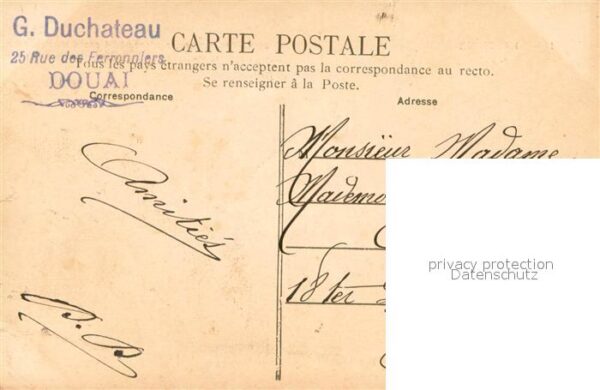 G. Duchateau
25 Rue des Ferronniers
DOUAI
CARTE POSTALE
Tous les pays étrangers n'acceptent pas la correspondance au recto.
Se renseigner à la Poste.
Correspondance
Adresse
Amitiés
Monsieur Madame
18 ter
privacy protection
Datenschutz